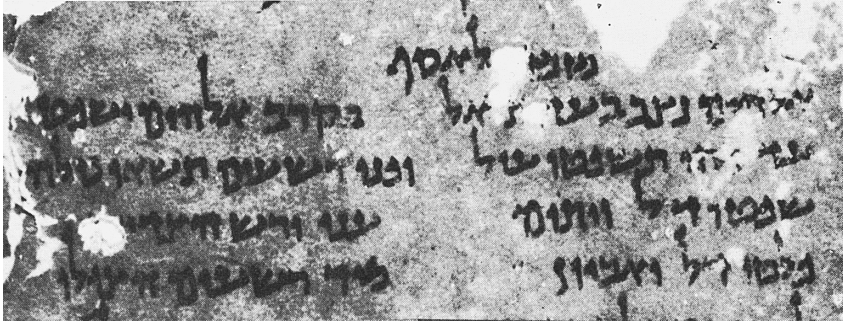 לאסף
אלהים נצב בעדת אל בקרב אלהים ישפט
עד מתי תשפטו עול ופני רשעים תשאו סלה
שפטו דל ויתום עני ורש
פלטו דל ואביון מיד רשעים הצילו